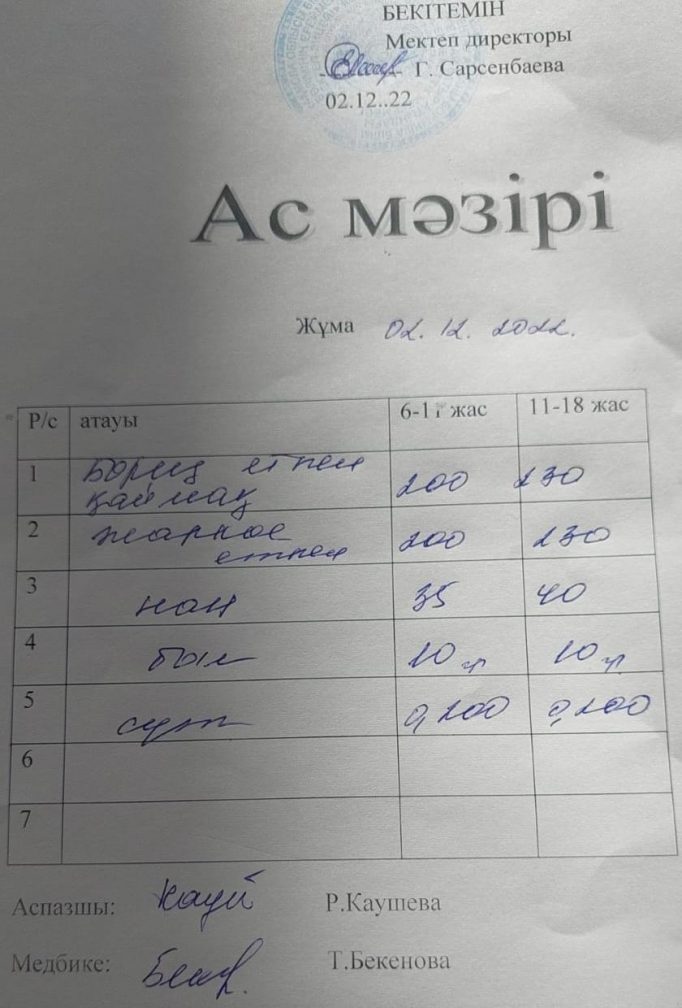 БЕКІТЕМІН
Мектеп директоры
Г. Сарсенбаева
02.12..22
Ас мәзірі
Жұма 02. 12. 2022.
Р/с атауы 6-11 жас 11-18 жас
1 Борщ етпен 200 230
қаймақ
2 жаркое 200 230
етпен
3 нан 35 40
4 10 гр 10 гр
5 сүт 0,200 0,200
6
7
Аспазшы: Кауй Р.Каушева
Медбике: Т.Бекенова